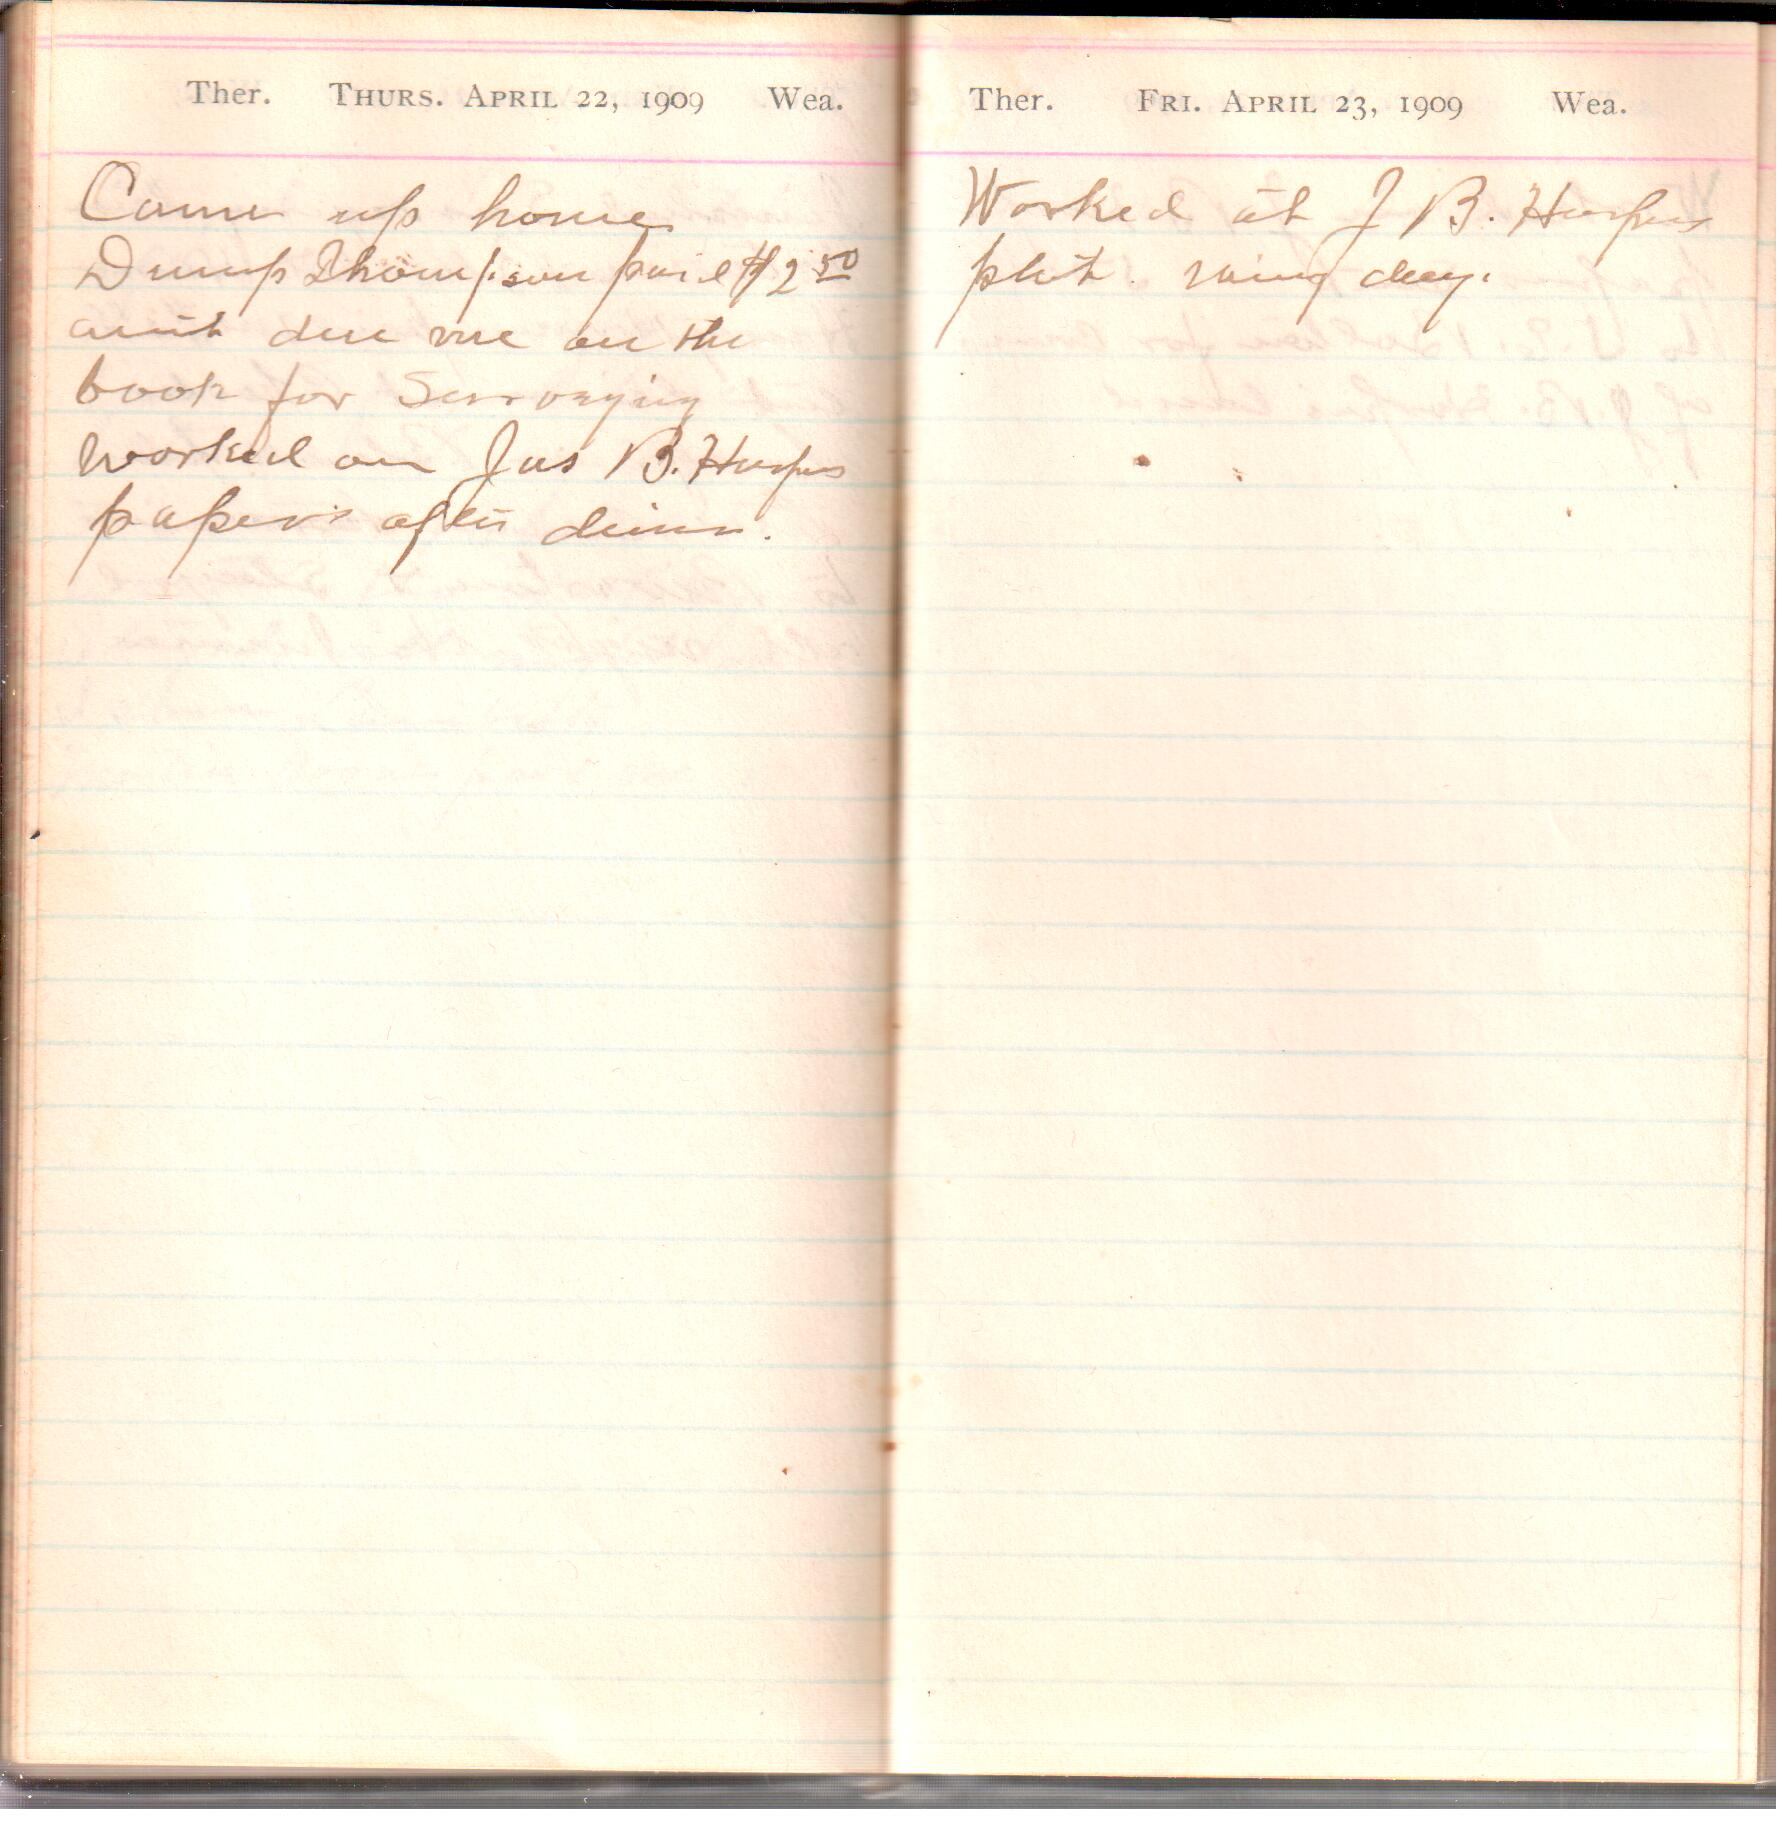 Ther. THURS. APRIL 22, 1909 Wea.
Came up home
Dump Thompson paid $2 50
amt due me on the
book for Serroveying
worked on Jas B. Harpers
papers after dinn.
Ther. FRI. APRIL 23, 1909 Wea.
Worked at J B. Harpers
plat. rainy day.